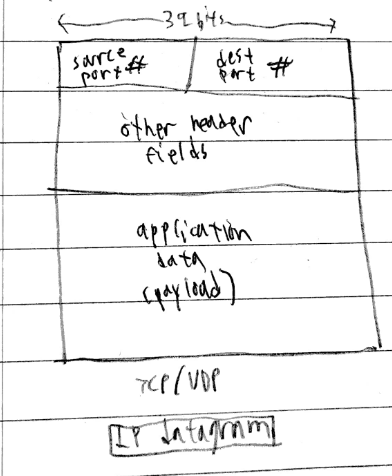 32 bits
source dest
port # port #
other header
fields
application
data
(payload)
TCP/UDP
IP datagram